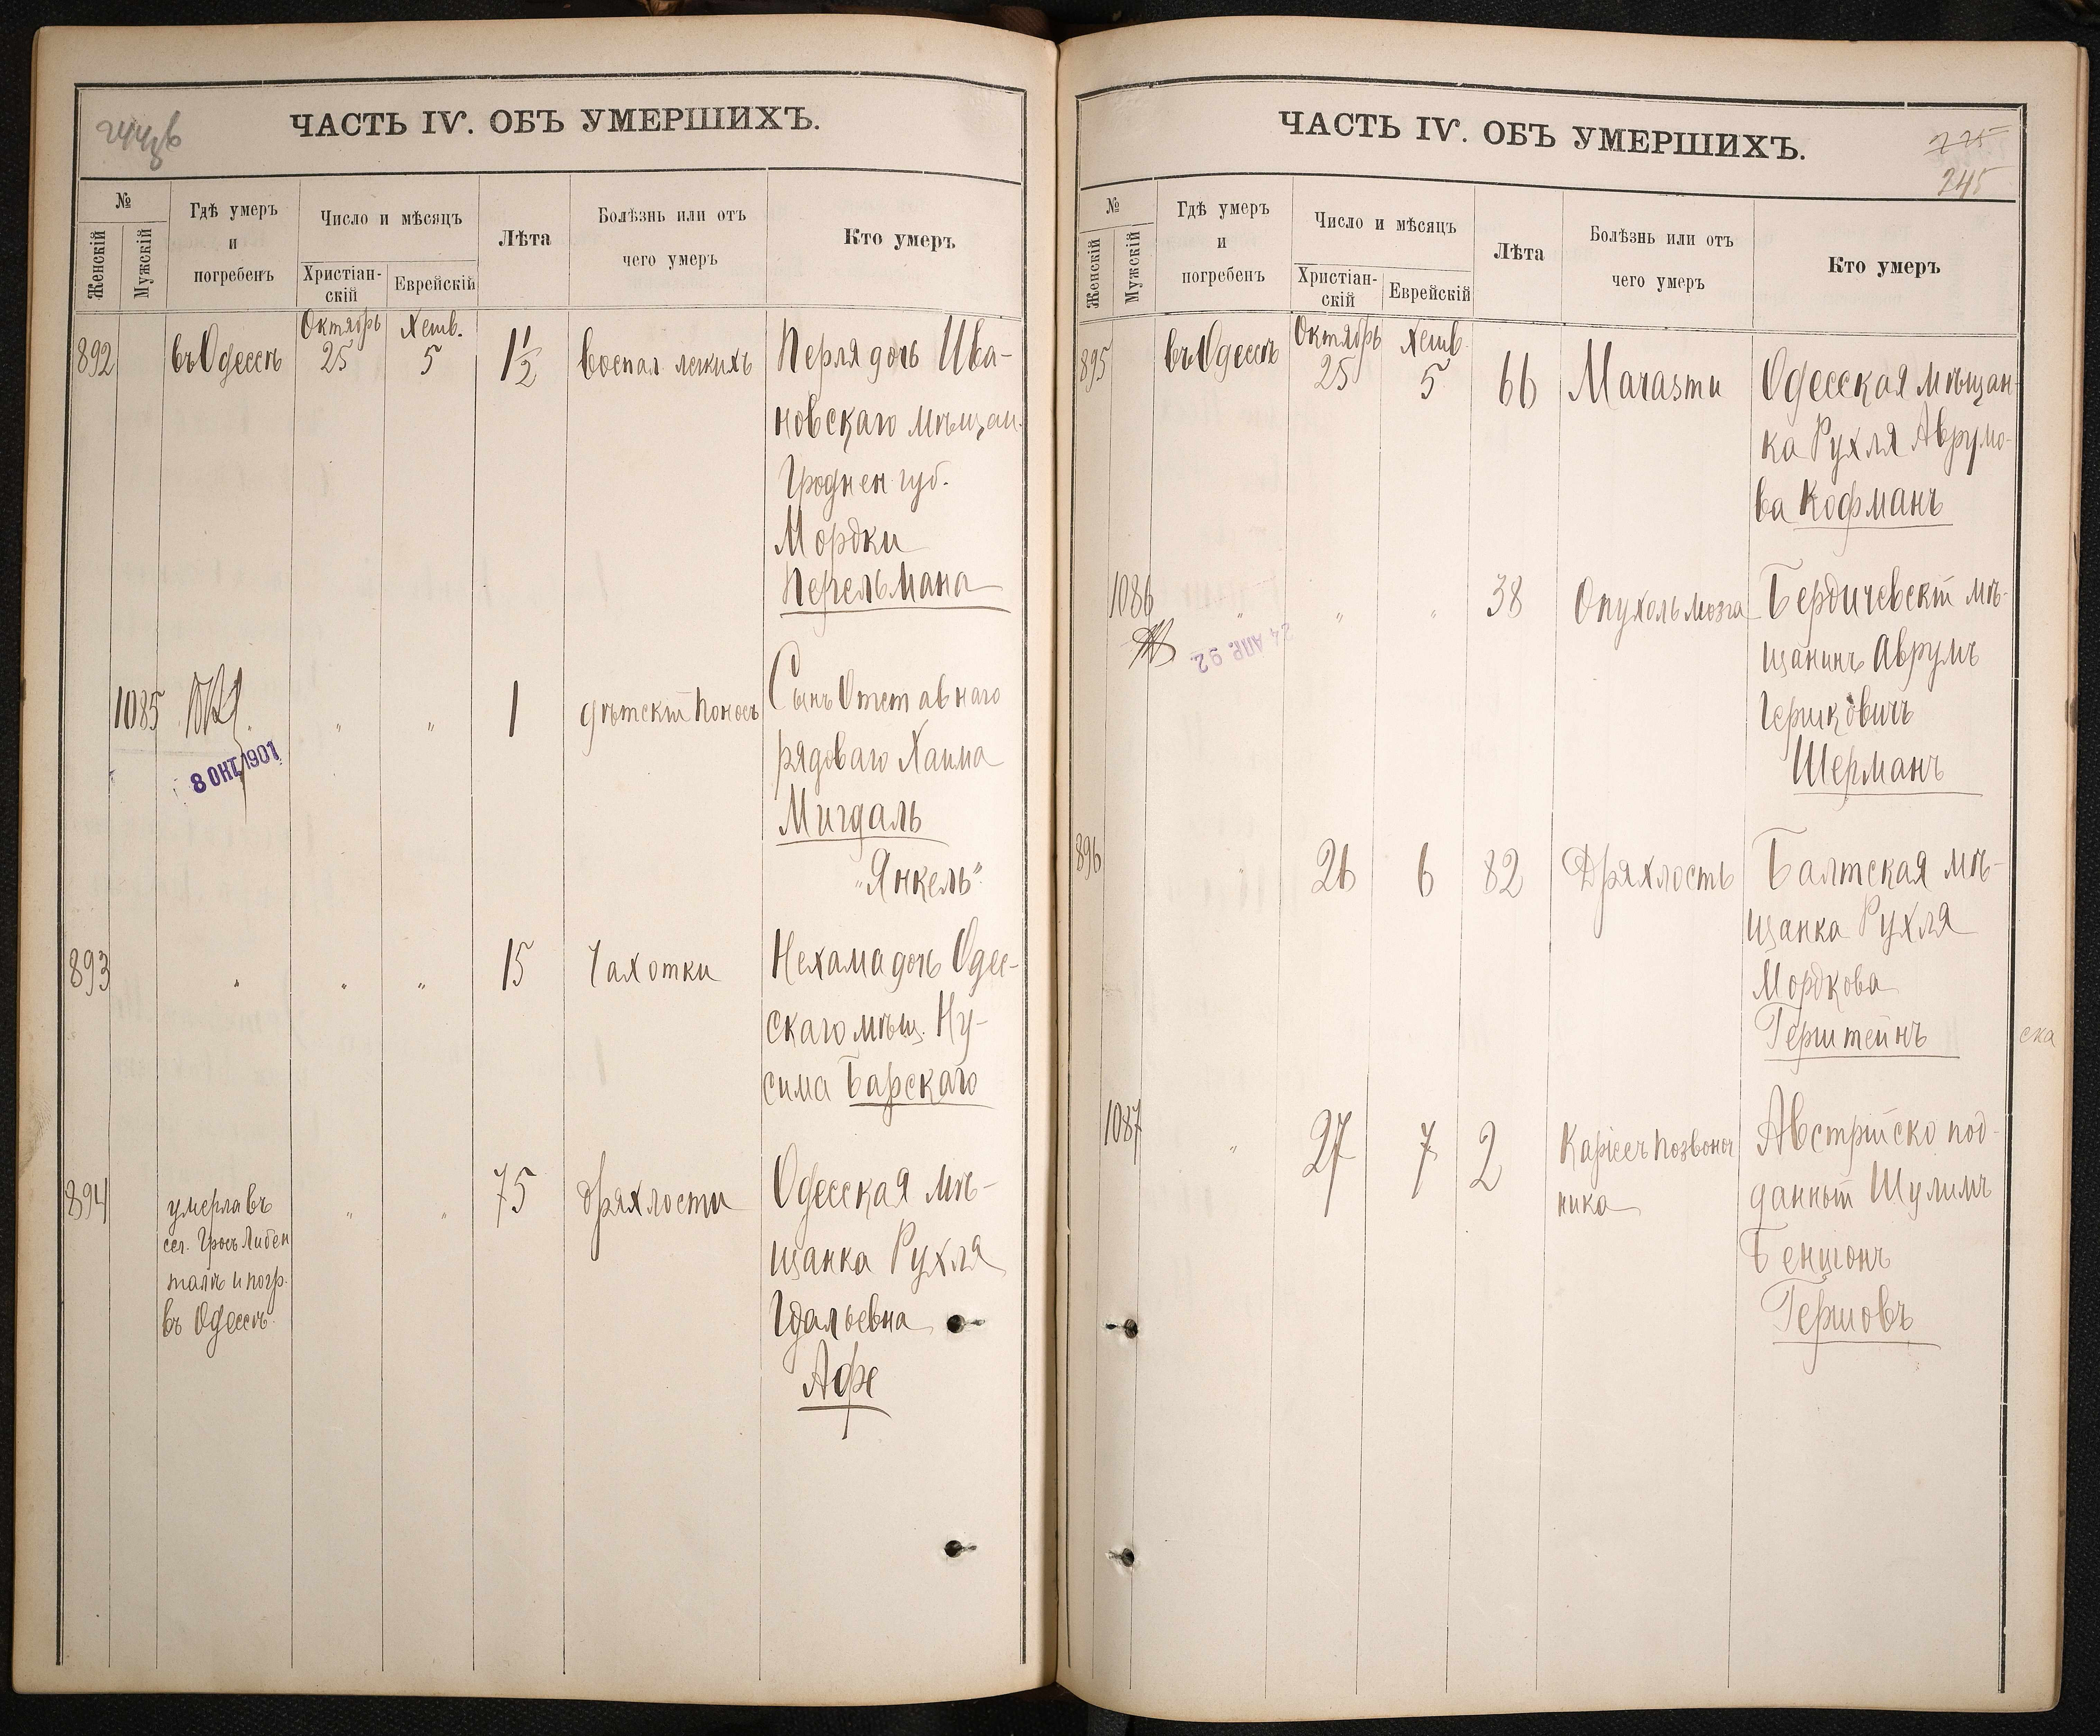 244об
ЧАСТЬ IV. ОБЪ УМЕРШИХЪ.
№
Женскій
Мужскій
Гдѣ умеръ
и
погребенъ
Число и мѣсяцъ
Христіан-
скій
Еврейскій
Лѣта
Болѣзнь или отъ
чего умеръ
Кто умеръ
892 въ Одессѣ Октябрь 25 Хешв. 5 1½ воспал. легкихъ Перля дочь Ива-
новскаго мѣщан.
Гроднен губ.
Мордки
Перельмана
1085 " " 1 дѣтскій поносъ Сынъ Отставнаго
рядоваго Хаима
Мигдаль
"Янкель"
8 ОКТ 1901
893 " " " 15 Чахотки Нехама дочь Одес-
скаго мѣщ. Ну-
сима Барскаго
894 умерла въ " " 75 дряхлости Одесская мѣ-
сел. Гросъ Либен
талѣ и погр.
въ Одессѣ.
щанка Рухля
Гдальевна
Афе
ЧАСТЬ IV. ОБЪ УМЕРШИХЪ.
225
245
№
Женскій
Мужскій
Гдѣ умеръ
и
погребенъ
Число и мѣсяцъ
Христіан-
скій
Еврейскій
Лѣта
Болѣзнь или отъ
чего умеръ
Кто умеръ
895 въ Одессѣ Октябрь 25 Хешв. 5 66 Marasmu Одесская мѣщан-
ка Рухля Аврумо-
ва Кофманъ
1086 " " " 38 Опухоль мозга Бердичевскій мѣ-
щанинъ Аврумъ
Гершковичъ
Шерманъ
24 АПР. 92
896 " 26 6 82 Дряхлость Балтская мѣ-
щанка Рухля
Мордкова
Герштейнъ
ска
1087 " 27 7 2 Каріесъ позвоноч
ника
Австрійско под-
данный Шулимъ
Бенціонъ
Гершовъ